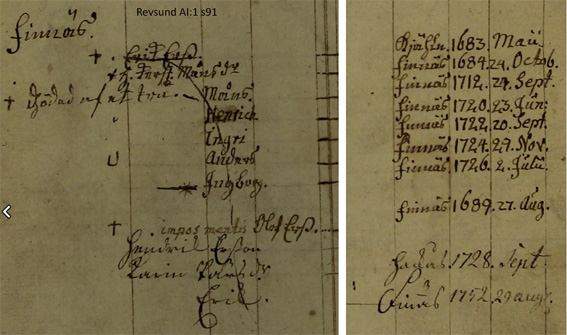 Revsund AI:1 s91
Finnäs.
† Erik Ersß.
† H. Kerst. Måns dr
† dödad af et träd. Måns.
Henrich
Ingri
U Anders
Ingborg.
† impos mentis Olof Ersß.
Hendrik Ersson
Karin Larsdr
Erik.
1683. Maij.
Finnäs 1684. 24. Octob.
Finnäs 1712. 24. Sept.
Finnäs 1720. 23. Jun:
Finnäs 1722. 20. Sept.
Finnäs 1724. 27. Nov.
Finnäs 1726. 2. Julii.
Finnäs 1689. 27. Aug.
1728. Sept
Finnäs 1752 29 aug.